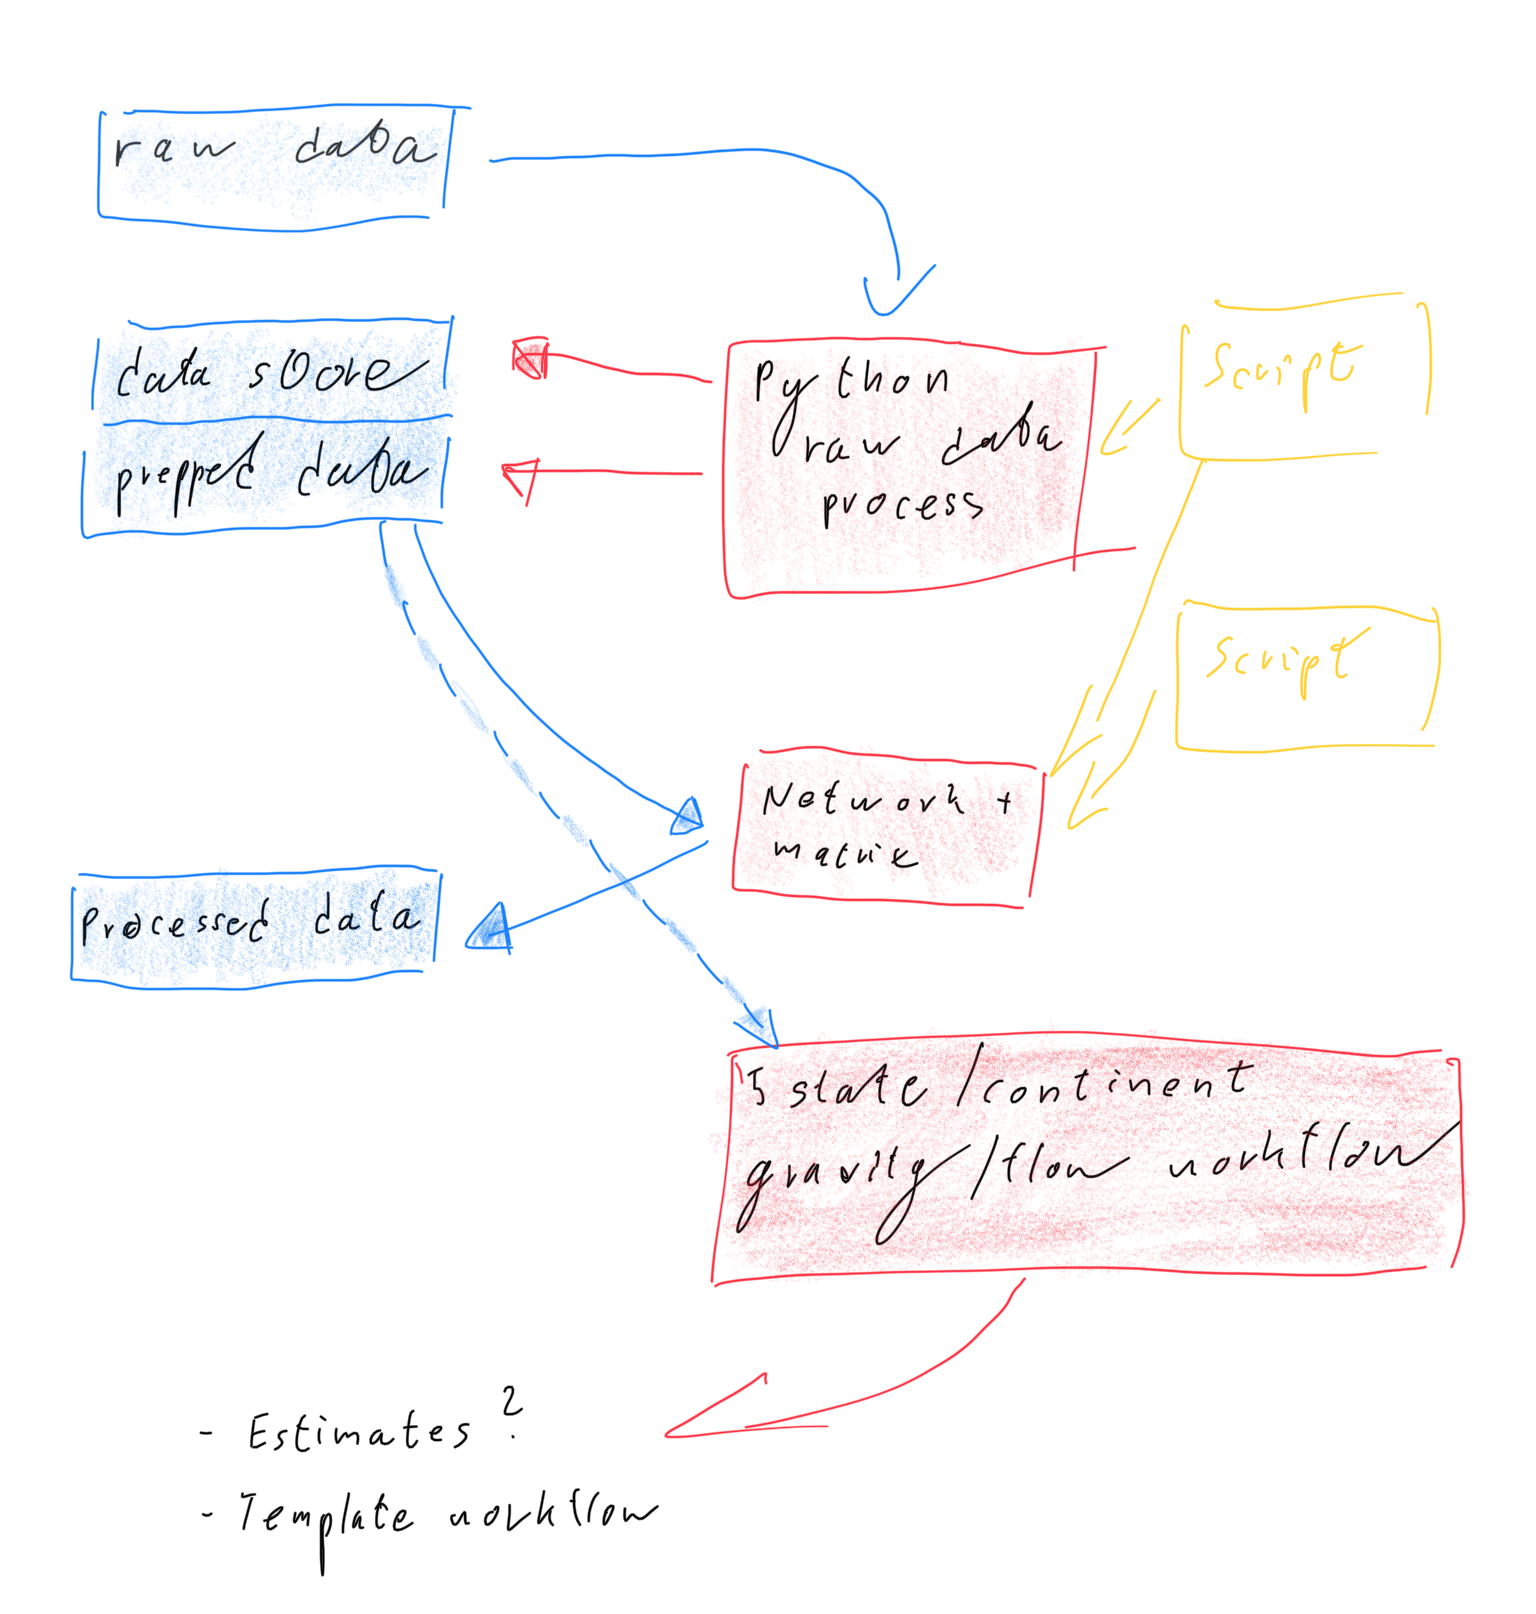 raw data
data store
prepped data
Python
raw data
process
Script
Script
Network +
matrix
Processed data
5 state / continent
gravity / flow workflow
- Estimates ?
- Template workflow